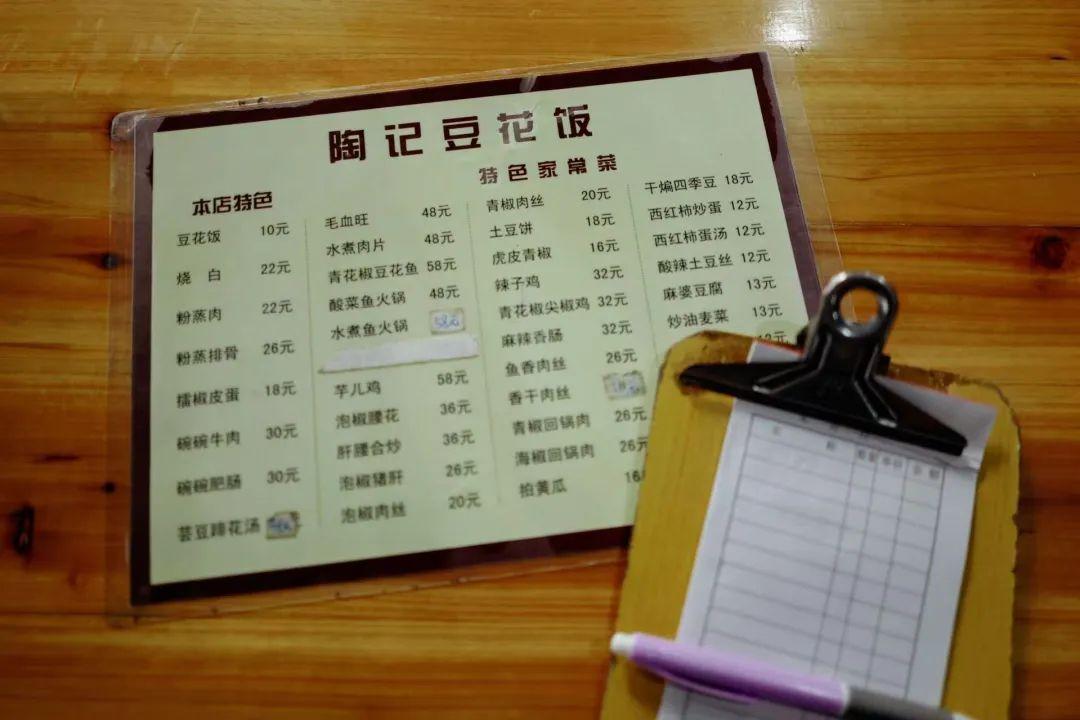 陶记豆花饭
本店特色
豆花饭 10元
烧 白 22元
粉蒸肉 22元
粉蒸排骨 26元
擂椒皮蛋 18元
碗碗牛肉 30元
碗碗肥肠 30元
芸豆蹄花汤
特色家常菜
毛血旺 48元
水煮肉片 48元
青花椒豆花鱼 58元
酸菜鱼火锅 48元
水煮鱼火锅 58元
芋儿鸡 58元
泡椒腰花 36元
肝腰合炒 36元
泡椒猪肝 26元
泡椒肉丝 20元
青椒肉丝 20元
土豆饼 18元
虎皮青椒 16元
辣子鸡 32元
青花椒尖椒鸡 32元
麻辣香肠 32元
鱼香肉丝 26元
香干肉丝
青椒回锅肉 26元
海椒回锅肉 26元
拍黄瓜
干煸四季豆 18元
西红柿炒蛋 12元
西红柿蛋汤 12元
酸辣土豆丝 12元
麻婆豆腐 13元
炒油麦菜 13元